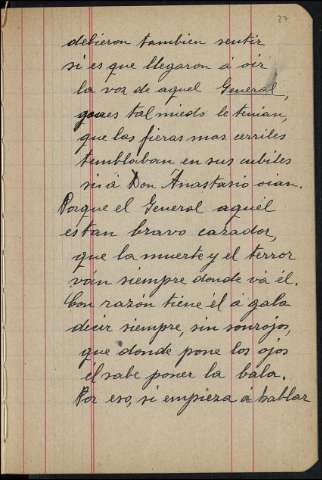 27
debieron tambien sentir
si es que llegaron á oir
la voz de aquel General,
pues tal miedo le tenian,
que las fieras mas cerriles
temblaban en sus cubiles
si á Don Anastasio oian.
Porque el General aquél
es tan bravo cazador,
que la muerte y el terror
ván siempre donde vá él.
Con razón tiene él á gala
decir siempre, sin sonrojos,
que donde pone los ojos
el sabe poner la bala.
Por eso, si empieza á hablar